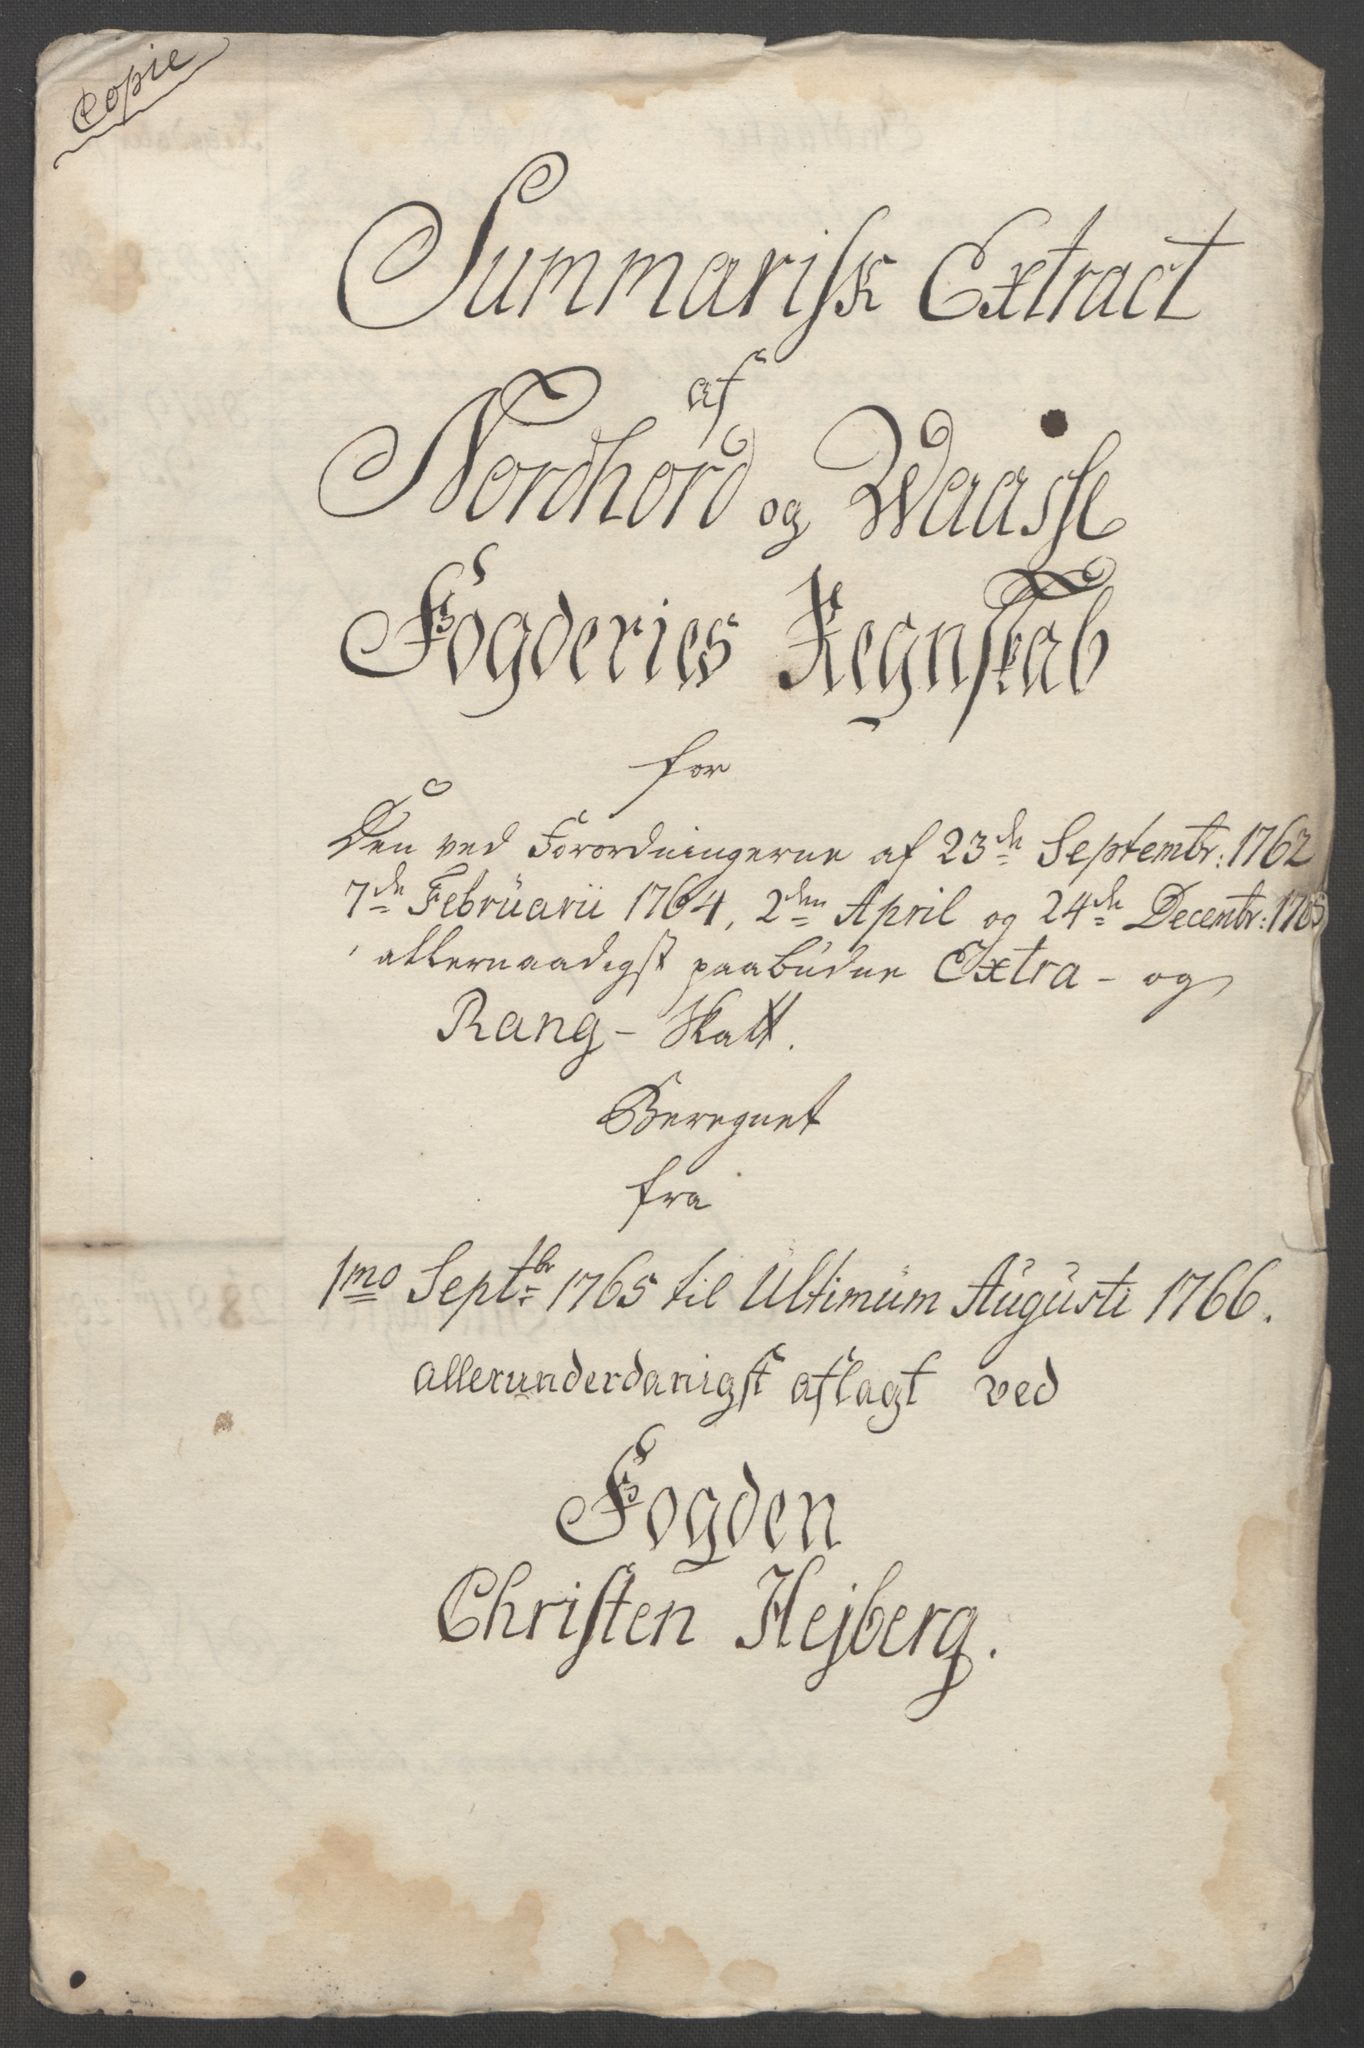 Copie
Summarisk Extract
af
Nordhord og Waasse
Fogderies Regnskab
for
Den ved Forordningerne af 23de Septembr: 1762
7de Februarii 1764, 2den April og 24de Decembr: 1765
allernaadigst paabudne Extra - og
Rang - Skatt.
Beregnet
fra
1mo Septbr 1765 til Ultimum Augusti 1766.
allerunderdanigst aflagt ved
Fogden
Christen Hejberg.